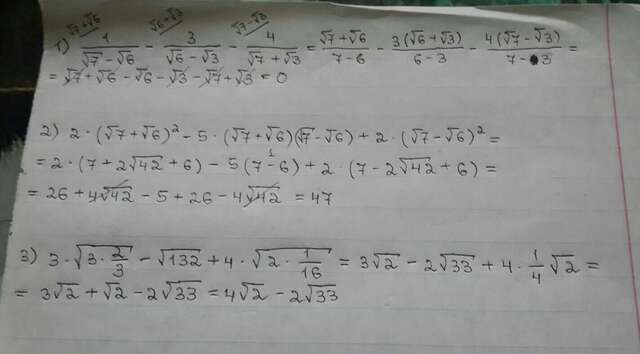 √7+√6 √6+√3 √7-√3
1) 1/(√7-√6) - 3/(√6-√3) - 4/(√7+√3) = (√7+√6)/(7-6) - 3(√6+√3)/(6-3) - 4(√7-√3)/(7-3) =
= √7+√6-√6-√3-√7+√3=0
2) 2·(√7+√6)²-5·(√7+√6)(√7-√6)+2·(√7-√6)²=
=2·(7+2√42+6)-5(7-6)+2·(7-2√42+6)=
=26+4√42-5+26-4√42=47
3) 3·√(3·2/3)-√132+4·√(2·1/16)=3√2-2√33+4·1/4√2=
=3√2+√2-2√33=4√2-2√33